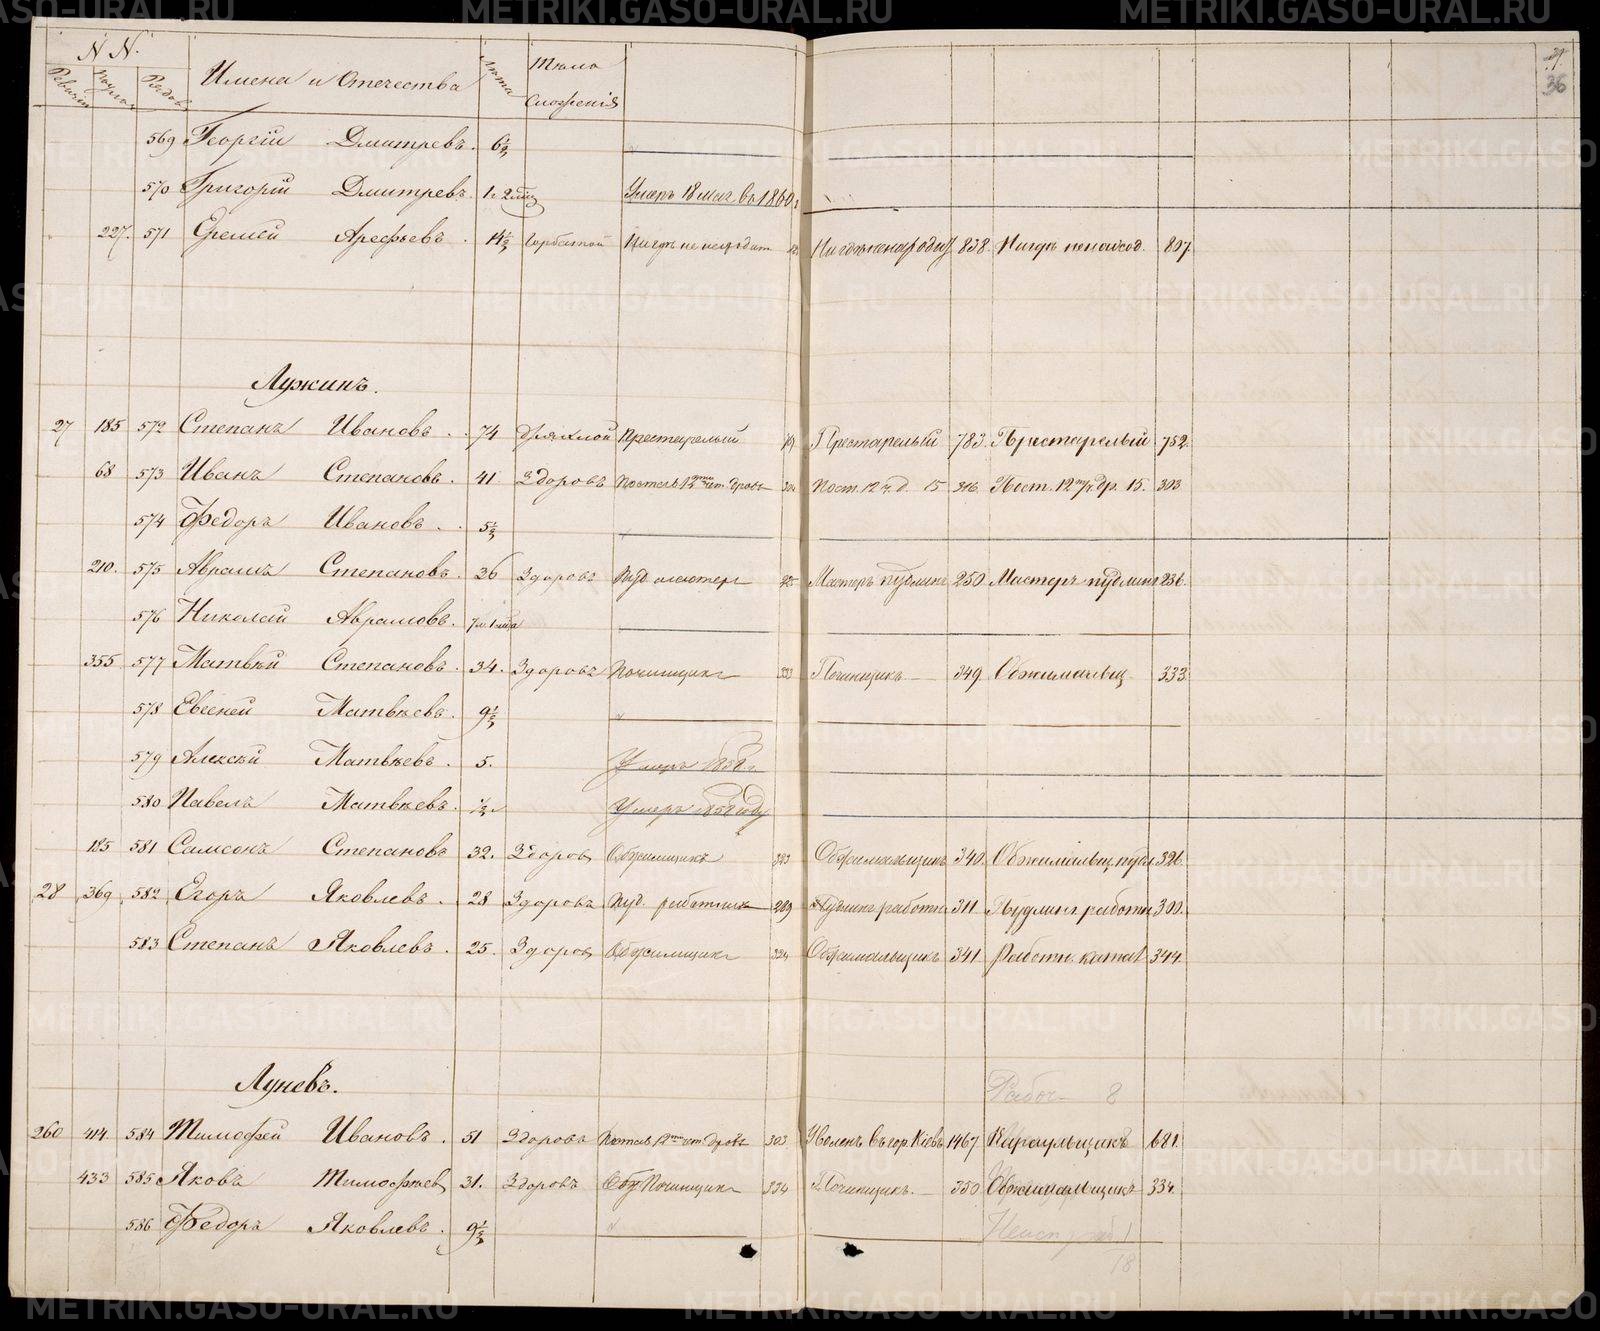 N N.
Ревизіи Рядов Имена и Отечества Лѣта Тѣло сложеніе
29. 36
569 Георгій Дмитревъ. 6½
570 Григорій Дмитревъ. 1 Умеръ 18 мая въ 1860 г.
227. 571 Еремей Арефьевъ. 14½ Горбатой Нигдѣ не находит 838. Нигдѣ ненаход. 807
Лужинъ.
27 185 572 Степанъ Ивановъ. 74 дряхлой Престарелый Престарелый 783. Престарелый 752.
68 573 Иванъ Степановъ. 41 Здоровъ Постав. 12 чет. дровъ Пост. 12 ч. д. 15 316. Пост. 12 др. 15. 303
574 Федоръ Ивановъ. 5½
210. 575 Аврамъ Степановъ. 36 Здоровъ Пуд. мастеръ Мастеръ пудлинг 250 Мастеръ пудлинг 236.
576 Николай Аврамовъ.
355 577 Матвѣй Степановъ. 34. Здоровъ Починщикъ 333 Починщикъ 349 Обжимальщ. 333
578 Евсеней Матвѣевъ. 9½
579 Алексѣй Матвѣевъ. 5. Умеръ 1858 г.
580 Павелъ Матвѣевъ. ½ Умеръ 1858 году
185 581 Самсонъ Степановъ 32. Здоров Обжимщикъ 323 Обжимальщикъ 340. Обжимальщ. пудл 326.
28 369 582 Егоръ Яковлевъ. 28 Здоровъ Пуд. работникъ 289 Пудлинг работн 311 Пудлинг работн 300.
583 Степанъ Яковлевъ. 25. Здоров Обжимщикъ 324 Обжимальщикъ 341 Работн. катал 344.
Луневъ.
Рабоч 8
260 414. 584 Тимофей Ивановъ. 51 Здоровъ Постав 12 чет. дровъ 303 Уволенъ въ гор. Кіевъ 1467 Караульщикъ 681.
433 585 Яковъ Тимофѣев 31. Здоровъ Обж Починщикъ 334 Починщикъ. 350 Обжимальщикъ 334.
586 Федоръ Яковлевъ. 9½
18
METRIKI.GASO-URAL.RU